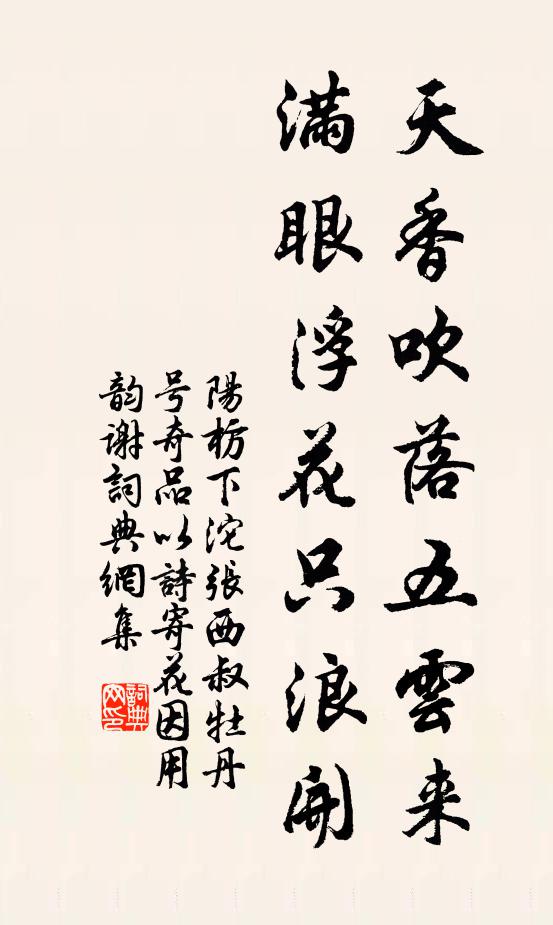 天香吹落五雲来
满眼浮花只浪開
陽枋下沱張西叔牡丹
号奇品以詩寄花因用
韵谢詞典網集
詞典
网印